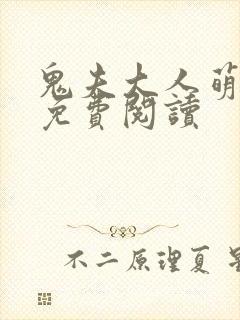 鬼夫大人萌
免費閱讀
不二原理夏